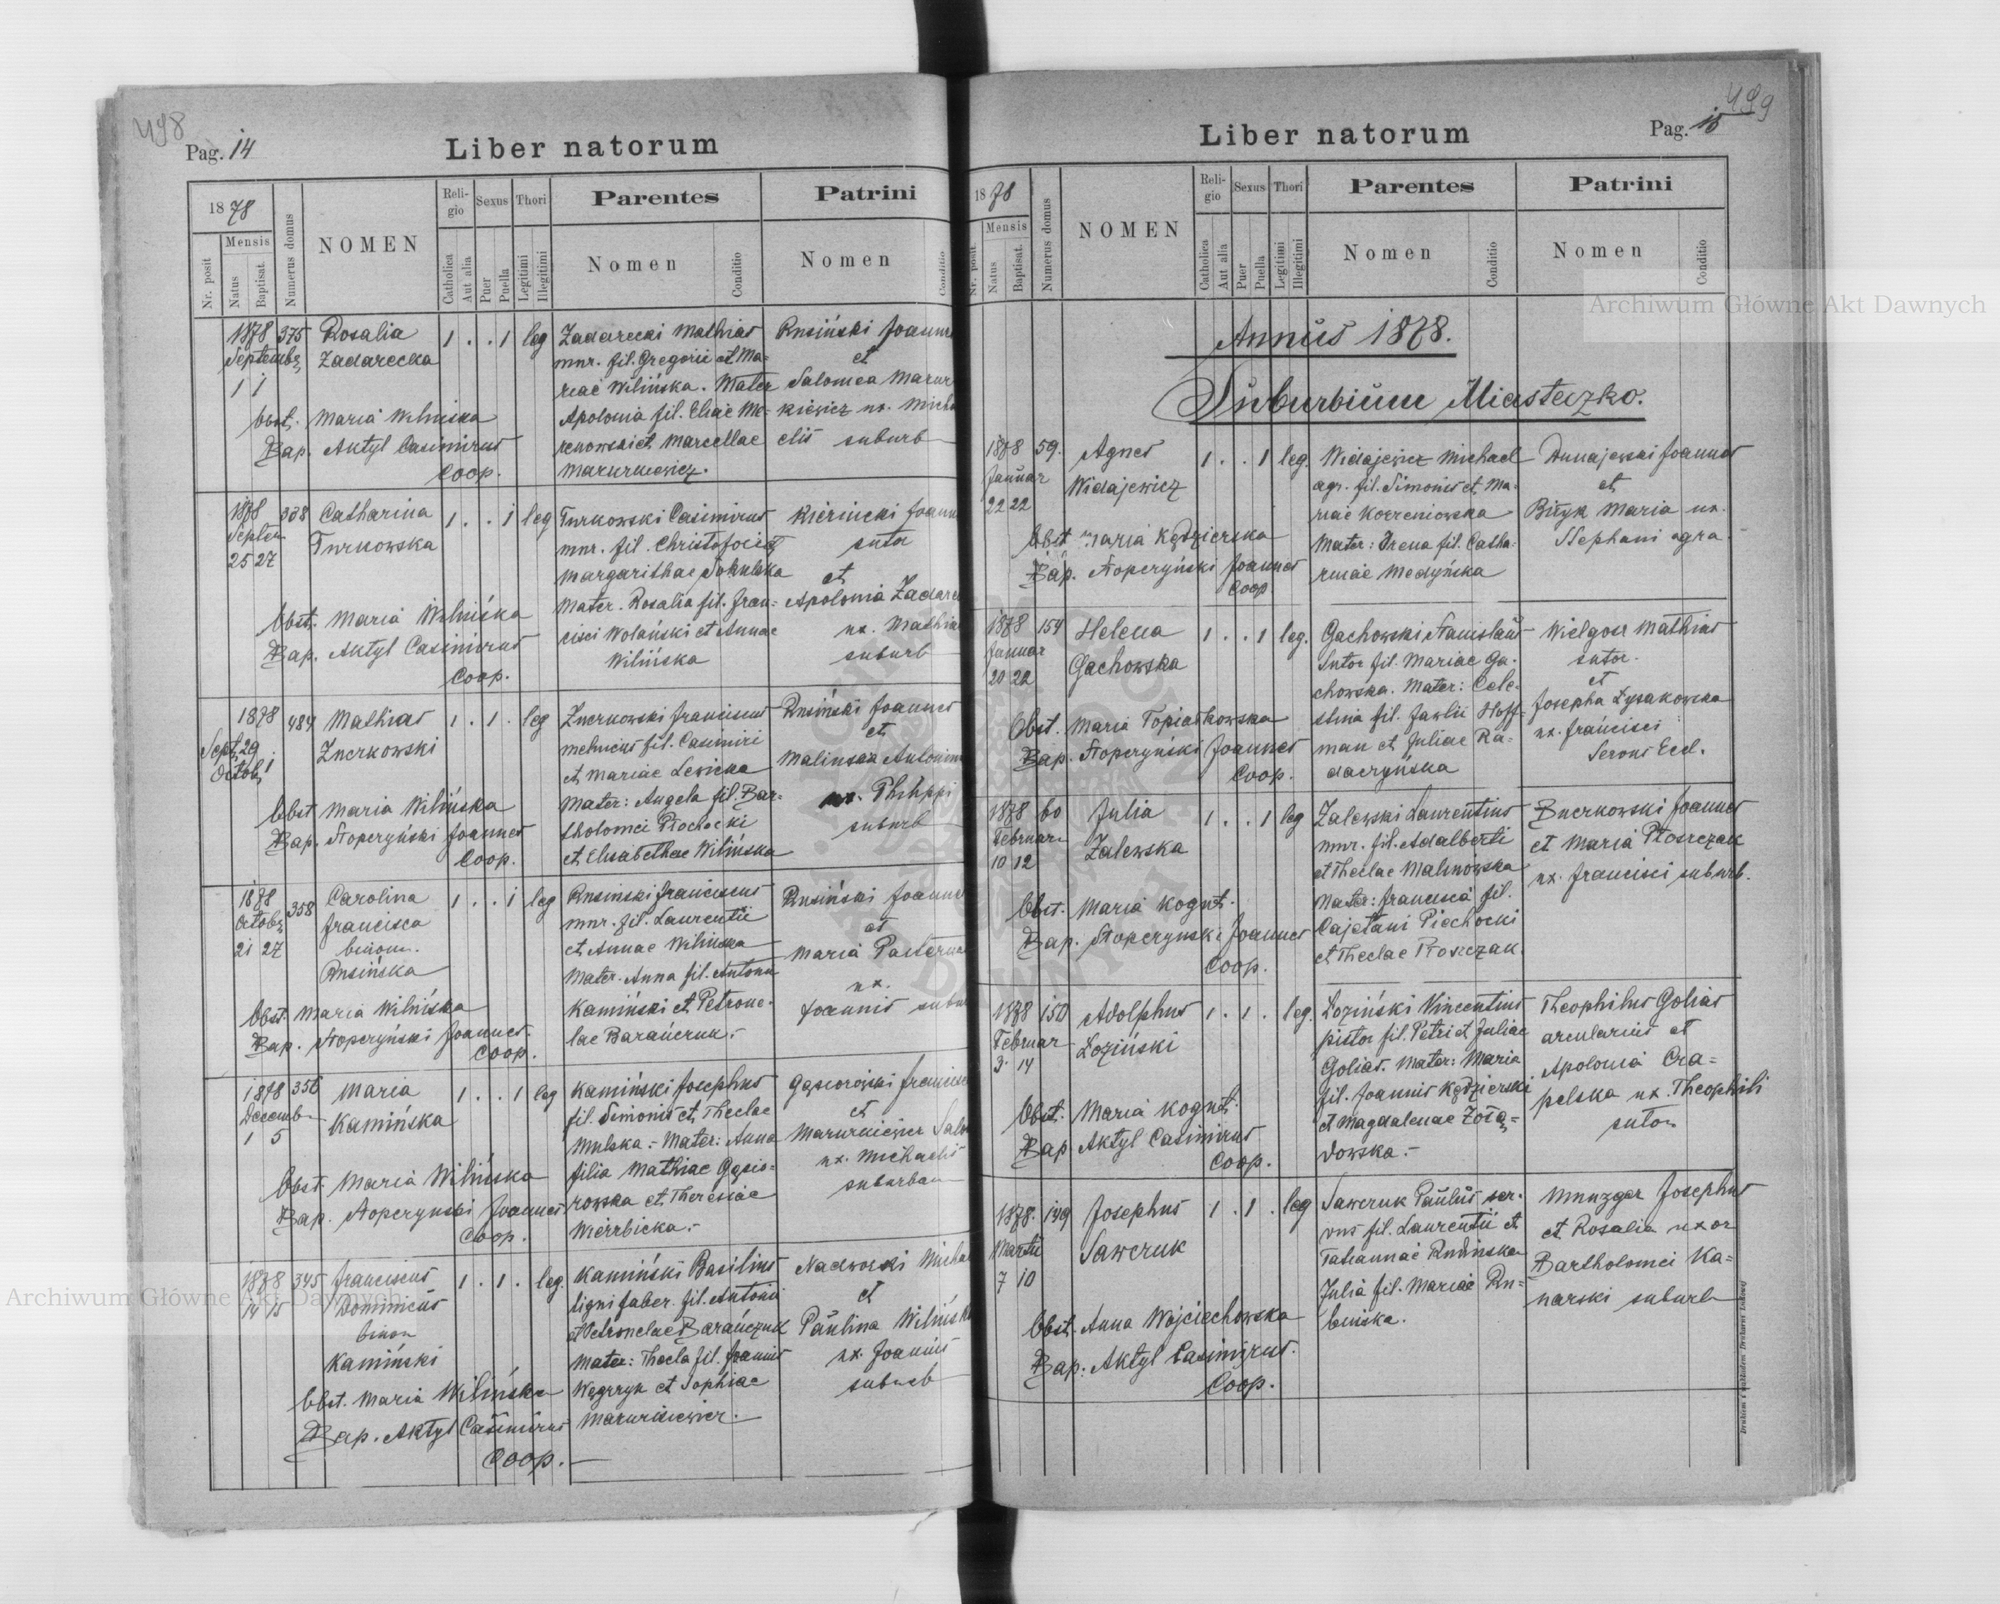 498
Pag. 14
Liber natorum
1878
Nr. posit
Mensis
Natus
Baptisat.
Numerus domus
NOMEN
Religio
Catholica
Aut alia
Sexus
Puer
Puella
Thori
Legitimi
Illegitimi
Parentes
Nomen
Conditio
Patrini
Nomen
Conditio
1878 375 Rosalia 1 . . 1 leg Zadarecki Mathias Rusiński
Zadarecka mnr. fil. Gregorii et Ma- et
1 1 riae Wilińska. Mater Salomea
Obst. Maria Wilińska Apolonia fil. Eliae
Bap. Aktyl Casimirus et Marcellae elis suburb
Coop. Mazurkiewicz.
1878 308 Catharina 1 . . 1 leg Turkowski Casimirus Kiernicki
Turkowska mnr. fil. Christofori et sutor
25 27 Margarithae et
Obst. Maria Wilińska Mater. Rosalia fil. Fran- Apolonia
Bap. Aktyl Casimirus cisci Wolański et Annae ux.
Coop. Wilińska suburb
1878 484 Mathias 1 . 1 . leg Franciscus Rusiński Joannes
Sept. 29 fil. Casimiri et
Octob. 1 et Mariae Lewicka Malinska
Obst. Maria Wilińska Mater: Angela fil. Bar- ux. Philippi
Bap. Stoperzyński Joannes tholomei Płochocki suburb
Coop. et Elisabethae Wilińska
1878 358 Carolina 1 . . 1 leg Rusinski Franciscus Rusiński
Octob. Francisca mnr. fil. Laurentii et
21 27 binom. et Annae Wilińska Maria
Rusińska Mater. Anna fil. Antonii ux.
Obst. Maria Wilińska Kamiński et Petrone- Joannis
Bap. Stoperzyński Joannes. lae Barańczuk.-
Coop.
1878 356 Maria 1 . . 1 leg Kamiński Josephus Gąsiorowski
Decemb Kamińska fil. Simonis et Theclae et
1 5 Mulska.- Mater: Anna Mazurkiewicz
Obst. Maria Wilińska filia Mathiae Gąsio- ux. Michaelis
Bap. Stoperzynski Joannes rowska et Theresiae suburban
Coop. Wierzbicka.-
1878 345 Franciscus 1 . 1 . leg. Kamiński Basilius Nadworski
14 15 Dominicus ligni faber. fil. Antonii et
binom et Petronelae Barańczuk Paulina
Kamiński Mater: Thecla fil. Joannis ux. Joannis
Obst. Maria Wilińska Węgrzyk et Sophiae suburb
Bap. Aktyl Casimirus Mazurkiewicz.-
Coop.
499
Pag. 15
Liber natorum
1878
Nr. posit
Mensis
Natus
Baptisat.
Numerus domus
NOMEN
Religio
Catholica
Aut alia
Sexus
Puer
Puella
Thori
Legitimi
Illegitimi
Parentes
Nomen
Conditio
Patrini
Nomen
Conditio
Annus 1878.
Suburbium Miasteczko.
1878 59. Agnes 1 . . 1 leg. Widajewicz Michael Dunajewski Joannes
Januar Widajewicz agr. fil. Simonis et Ma- et
22 22 riae Korzeniowska Maria ux.
Obst Maria Kędzierska Mater: Irena fil. Catha- Stephani agra
Bap. Stoperzyński Joannes rinae Medyńska
Coop
1878 154 Helena 1 . . 1 leg. Gachowski Stanislaus Wielgosz Mathias
Januar Gachowska Sutor fil. Mariae Ga- sutor.
20 22 chowska. Mater: Cele- et
Obst. Maria Topiatkowska stina fil. Pawlii Hoff- Josepha Łysakowska
Bap. Stoperzyński Joannes man et Juliae Ra- ux. Francisci
Coop. daczyńska Servus Eccl.
1878 60 Julia 1 . . 1 leg Zalewski Laurentius Buczkowski Joannes
Februar Zalewska mnr. fil. Adalberti et Maria Płoszczak
10 12 et Theclae Malinowska ux. Francisci suburb.
Obst. Maria Kogut. Mater: Francisca fil.
Bap. Stoperzynski Joannes Cajetani Piechocki
Coop. et Theclae Płoszczak.
1878 150 Adolphus 1 . 1 . leg. Łoziński Vincentius Theophilus Golias
Februar Łoziński pistor fil. Petri et Juliae arcularius et
3 14 Golias. Mater: Maria Apolonia Cza=
Obst. Maria Kogut. fil. Joannis Kędzierski pelska ux. Theophili
Bap Aktyl Casimirus et Magdalenae Żołą= sutor
Coop. dowska.-
1878. 149 Josephus 1 . 1 . leg Sawczuk Paulus ser- Munzger Josephus
Martii Sawczuk vus fil. Laurentii et et Rosalia uxor
7 10 Tatiannae Bartholomei Ka=
Julia fil. Mariae Ru= narski suburb
Obst. Anna Wojciechowska binska.
Bap: Aktyl Casimirus.
Coop.
Archiwum Główne Akt Dawnych
Archiwum Główne Akt Dawnych